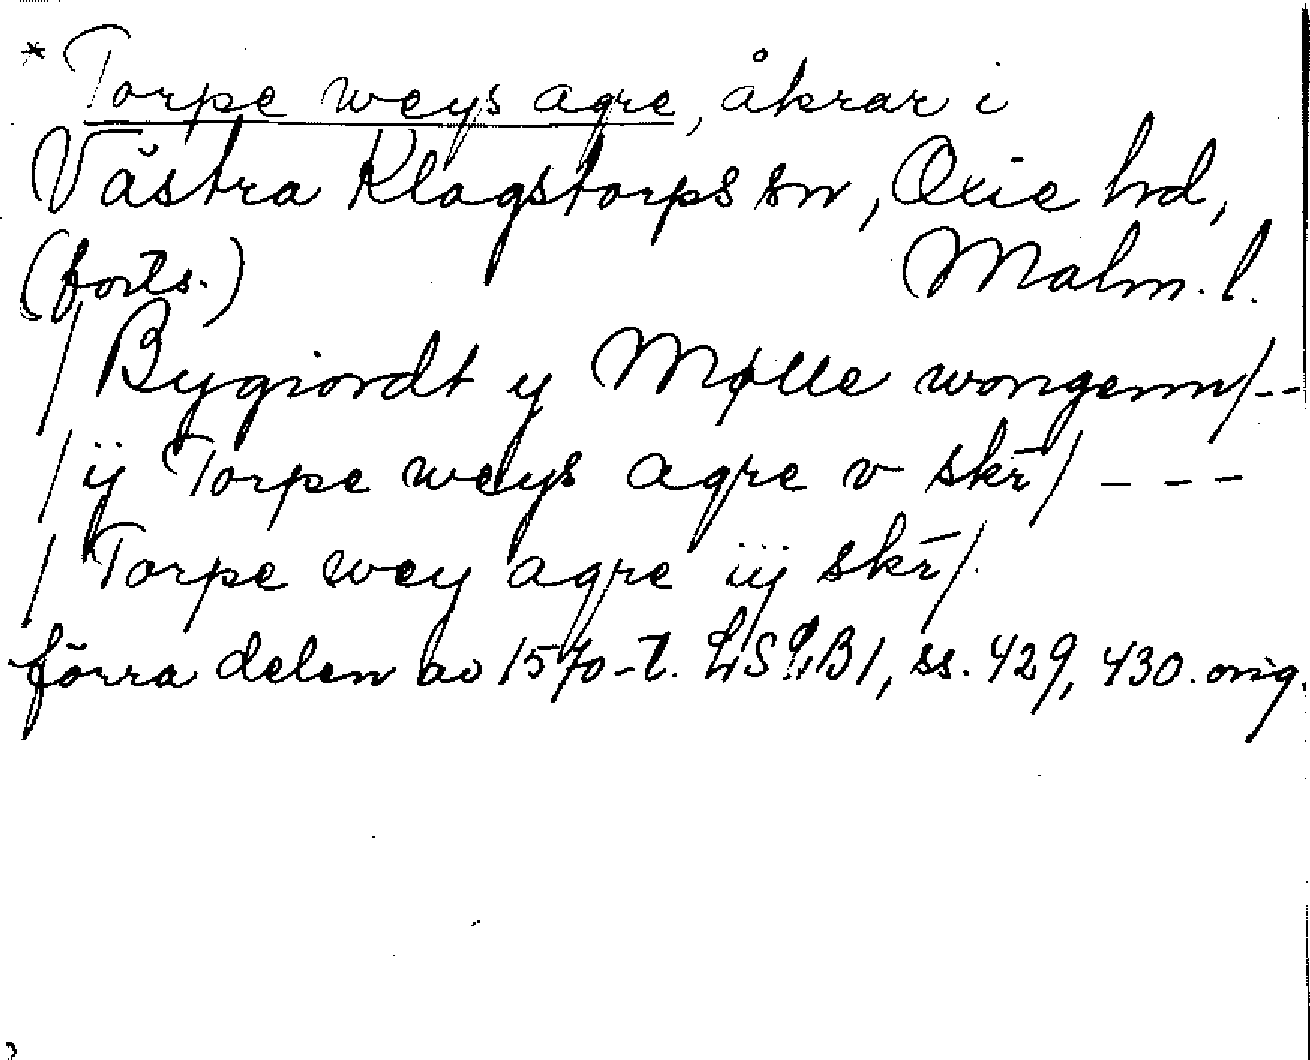 * Torpe weys agre, åkrar i
Västra Klagstorps sn, Oxie hd,
(forts.) Malm. l.
/ Bygiordt y Mølle wongenn/--
/ ij Torpe weys agre v skr̄/ - - -
/ Torpe wey agre iij skr̄/.
förra delen av 1570-t. B1, ss. 429, 430. orig.